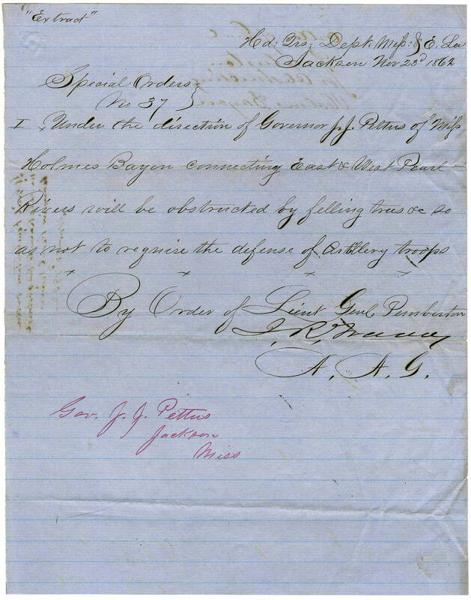 "Extract"
Hd: Qrs: Dept. Miss: & E. La
Jackson Nov 23d 1862
Special Orders
No 37
I. Under the direction of Governor J. J. Pettus of Miss
Holmes Bayou connecting East & West Pearl
Rivers will be obstructed by felling trees &c so
as not to require the defense of Artillery troops
By Order of Lieut Genl. Pemberton
J. R. Waddy
A. A. G.
Gov. J. J. Pettus
Jackson
Miss